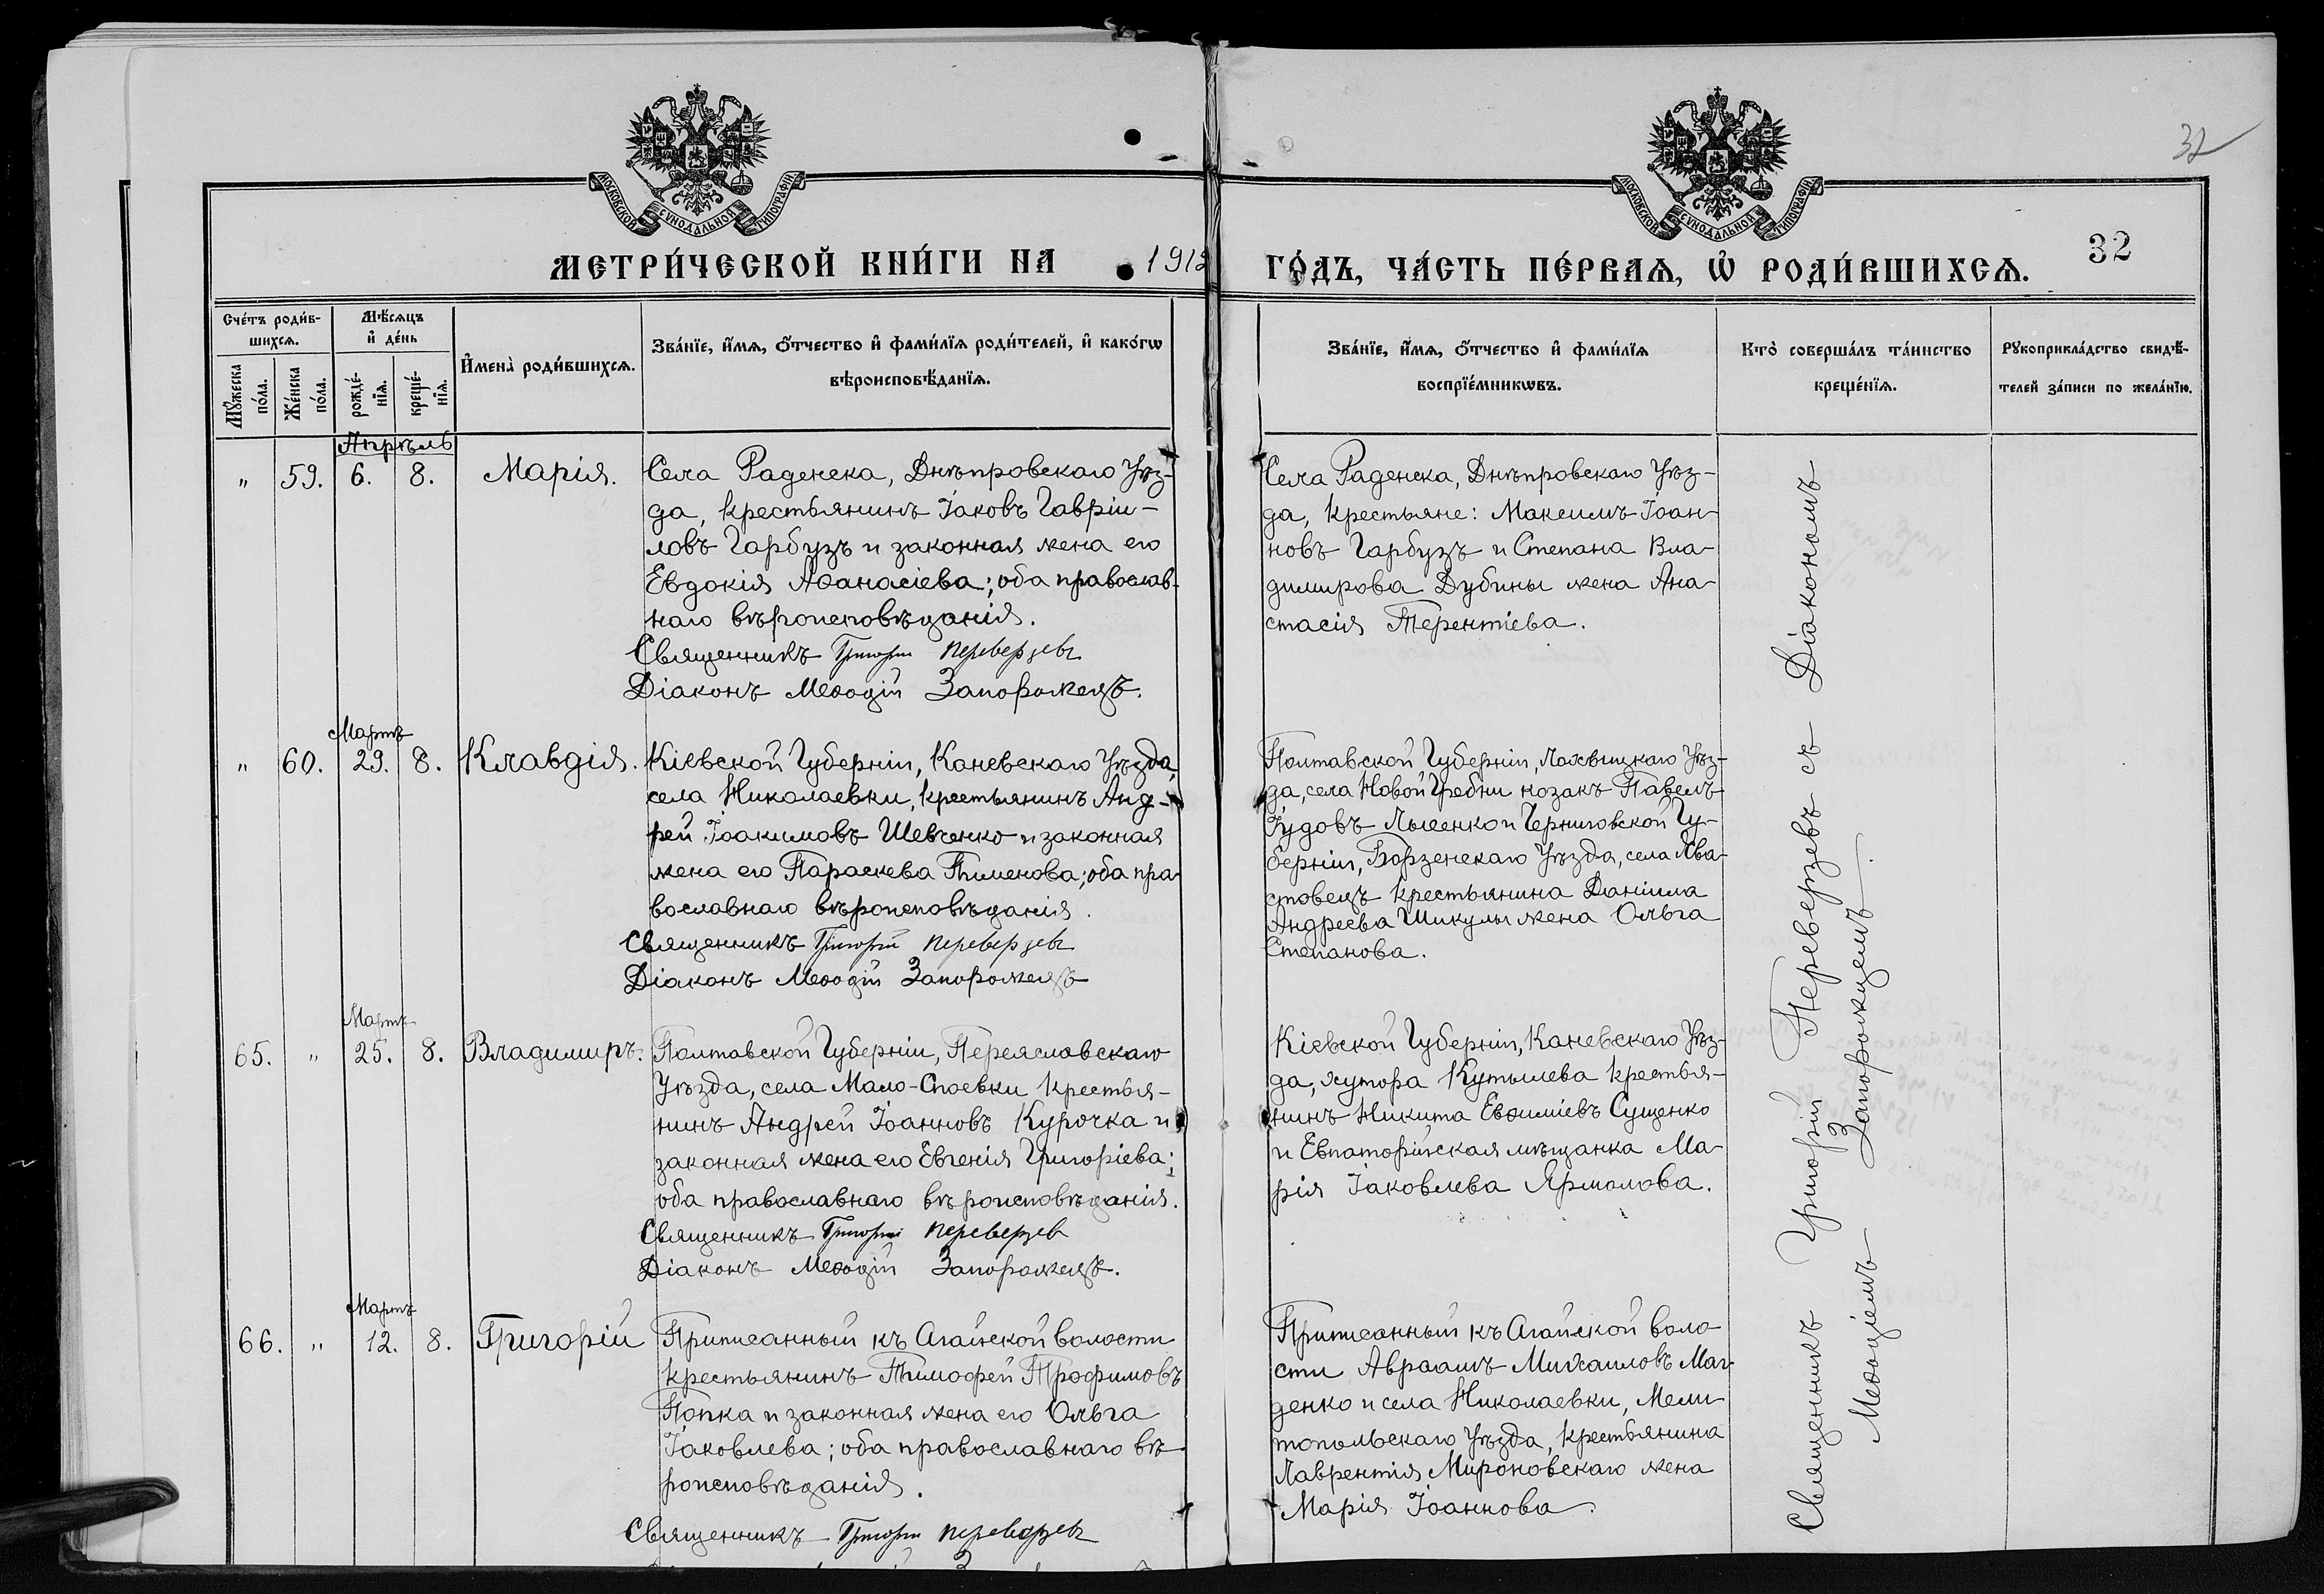 32
МОСКОВСКОЙ СѴНОДАЛЬНОЙ ТИПОГРАФІИ
МОСКОВСКОЙ СѴНОДАЛЬНОЙ ТИПОГРАФІИ
МЕТРИ́ЧЕСКОЙ КНИ́ГИ НА 1912 ГО́ДЪ, ЧА́СТЬ ПЕ́РВАѦ, Ѡ҆ РОДИ́ВШИХСѦ. 32
Сче́тъ роди́в-
шихсѧ.
Мꙋ́жеска по́ла.
Же́нска по́ла.
Мѣ́сѧцъ
и҆ де́нь
рожде́-
нїѧ.
креще́-
нїѧ.
И҆мена̀ роди́вшихсѧ.
Зва́нїе, и҆́мѧ, ѻ҆́тчество и҆ фами́лїѧ роди́телей, и҆ како́гѡ
вѣроисповѣ́данїѧ.
Зва́нїе, и҆́мѧ, ѻ҆́тчество и҆ фами́лїѧ
воспрїе́мникѡвъ.
Кто̀ соверша́лъ та́инство
креще́нїѧ.
Рꙋкоприкла́дство свидѣ́-
телей за́писи по жела́нїю.
Апрѣль
" 59. 6. 8. Марія.
Села Раденска, Днѣпровскаго Уѣз-
да, крестьянинъ Іаковъ Гавріи-
ловъ Гарбузъ и законная жена его
Евдокія Аѳанасіева; оба православ-
наго вѣроисповѣданія.
Священникъ Григорій Переверзевъ
Діаконъ Меѳодій Запорожецъ.
Села Раденска, Днѣпровскаго Уѣз-
да, крестьяне: Максимъ Іоан-
новъ Гарбузъ и Степана Вла-
димирова Дубины жена Ана-
стасія Терентіева.
Мартъ
" 60. 29. 8. Клавдія.
Кіевской Губерніи, Каневскаго Уѣзда,
села Николаевки, крестьянинъ Анд-
рей Іоакимовъ Шевченко и законная
жена его Параскева Пименова; оба пра-
вославнаго вѣроисповѣданія.
Священникъ Григорій Переверзевъ
Діаконъ Меѳодій Запорожецъ
Полтавской Губерніи, Лохвицкаго Уѣз-
да, села Новой Гребни козакъ Павелъ
Іудовъ Лысенко и Черниговской Гу-
берніи, Борзенскаго Уѣзда, села Хва-
стовецъ крестьянина Даніила
Андреева Шикулы жена Ольга
Степанова.
Мартъ
65. " 25. 8. Владимиръ.
Полтавской Губерніи, Переяславскаго
Уѣзда, села Мало-Споевки крестья-
нинъ Андрей Іоанновъ Курочка и
законная жена его Евгенія Григоріева;
оба православнаго вѣроисповѣданія.
Священникъ Григорій Переверзев
Діаконъ Меѳодій Запорожецъ.
Кіевской Губерніи, Каневскаго Уѣз-
да, хутора Кутылева крестья-
нинъ Никита Евѳиміевъ Сущенко
и Евпаторійская мѣщанка Ма-
рія Іаковлева Ярмолова.
Мартъ
66. " 12. 8. Григорій
Приписанный къ Агайской волости
крестьянинъ Тимофей Трофимовъ
Попка и законная жена его Ольга
Іаковлева; оба православнаго вѣ-
роисповѣданія.
Священникъ Григорій Переверзевъ
Приписанный къ Агайской воло
сти Авраамъ Михаиловъ Маг-
денко и села Николаевки, Мели-
топольскаго Уѣзда, крестьянина
Лаврентія Мироновскаго жена
Марія Іоаннова.
Священникъ Григорій Переверзевъ съ Діакономъ
Меѳодіемъ Запорожцемъ.